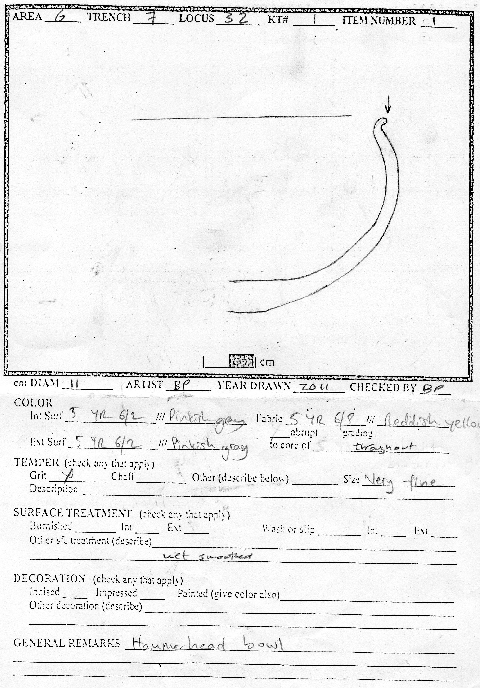 AREA 6 TRENCH 7 LOCUS 32 KT# 1 ITEM NUMBER 1
cm
cm: DIAM 11 ARTIST BP YEAR DRAWN 2011 CHECKED BY BP
COLOR
Int Surf 5 YR 6/2 /// Pinkish gray Fabric 5 YR 6/8 /// Reddish yellow
abrupt grading
Ext Surf 5 YR 6/2 /// Pinkish gray to core of 5 throughout
TEMPER (check any that apply)
Grit Chaff Other (describe below) Size Very fine
Description
SURFACE TREATMENT (check any that apply)
Burnished Int Ext Wash or slip Int Ext
Other surf. treatment (describe)
wet smoothed
DECORATION (check any that apply)
Incised Impressed Painted (give color also)
Other decoration (describe)
GENERAL REMARKS Hammerhead bowl